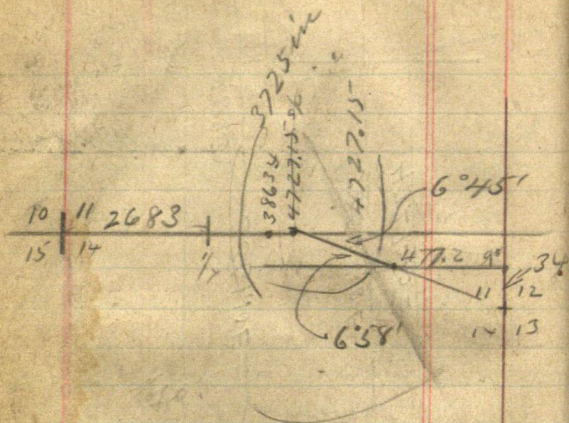 3725 in
38634
4727.15
4727.15
6°45'
10 11 2683
15 14
477.2 9°
34
11 12
14 13
6°58'